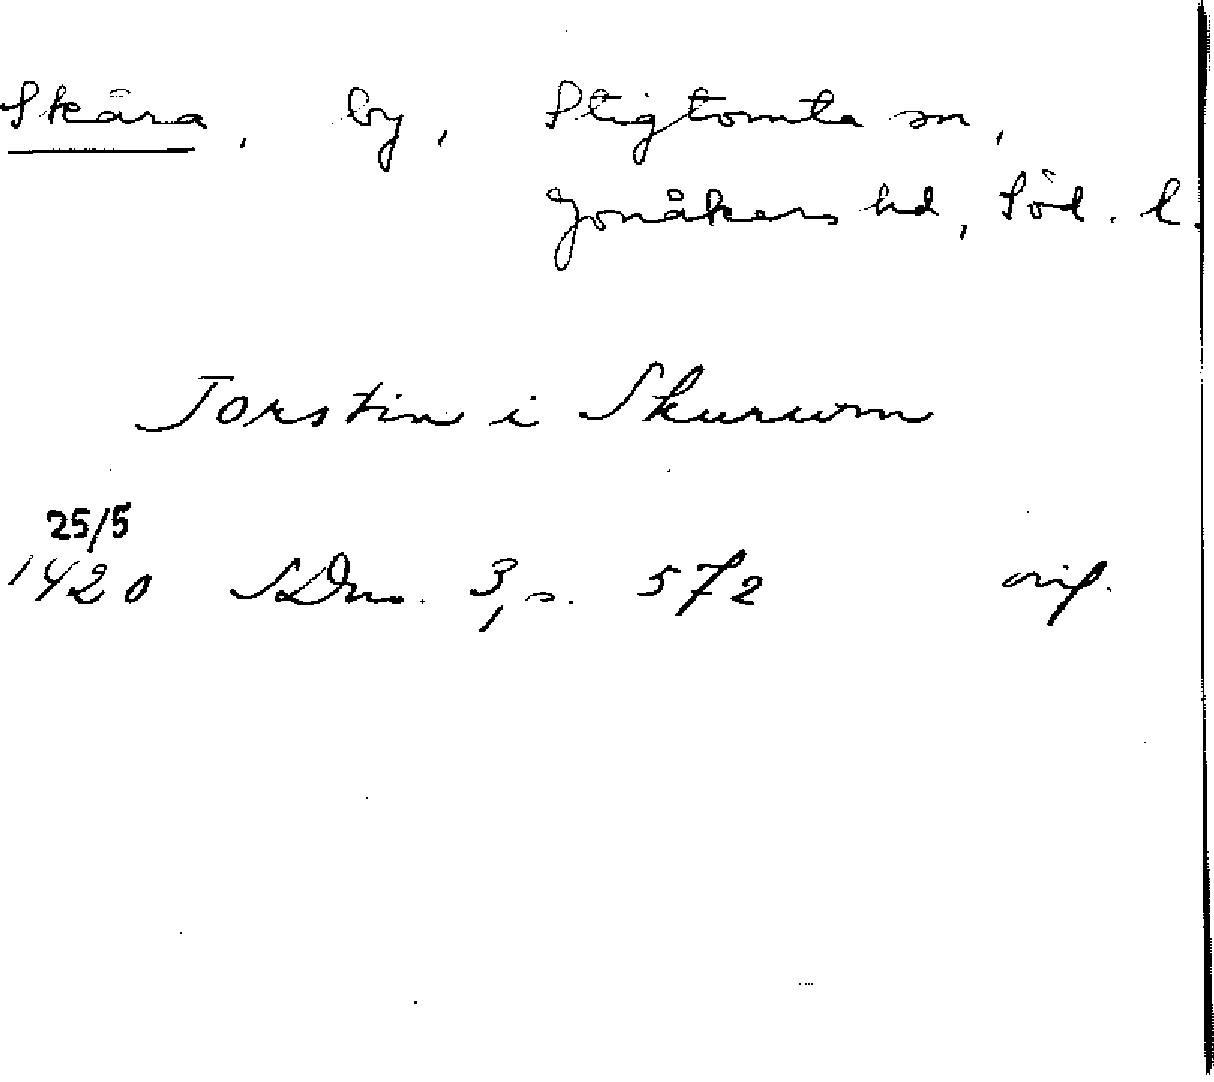 Skära, by, Stigtomta sn,
Jonåkers hd, Söd. l.
Torstin i Skurum
25/5
1420 SDns. 3, s. 572 orig.